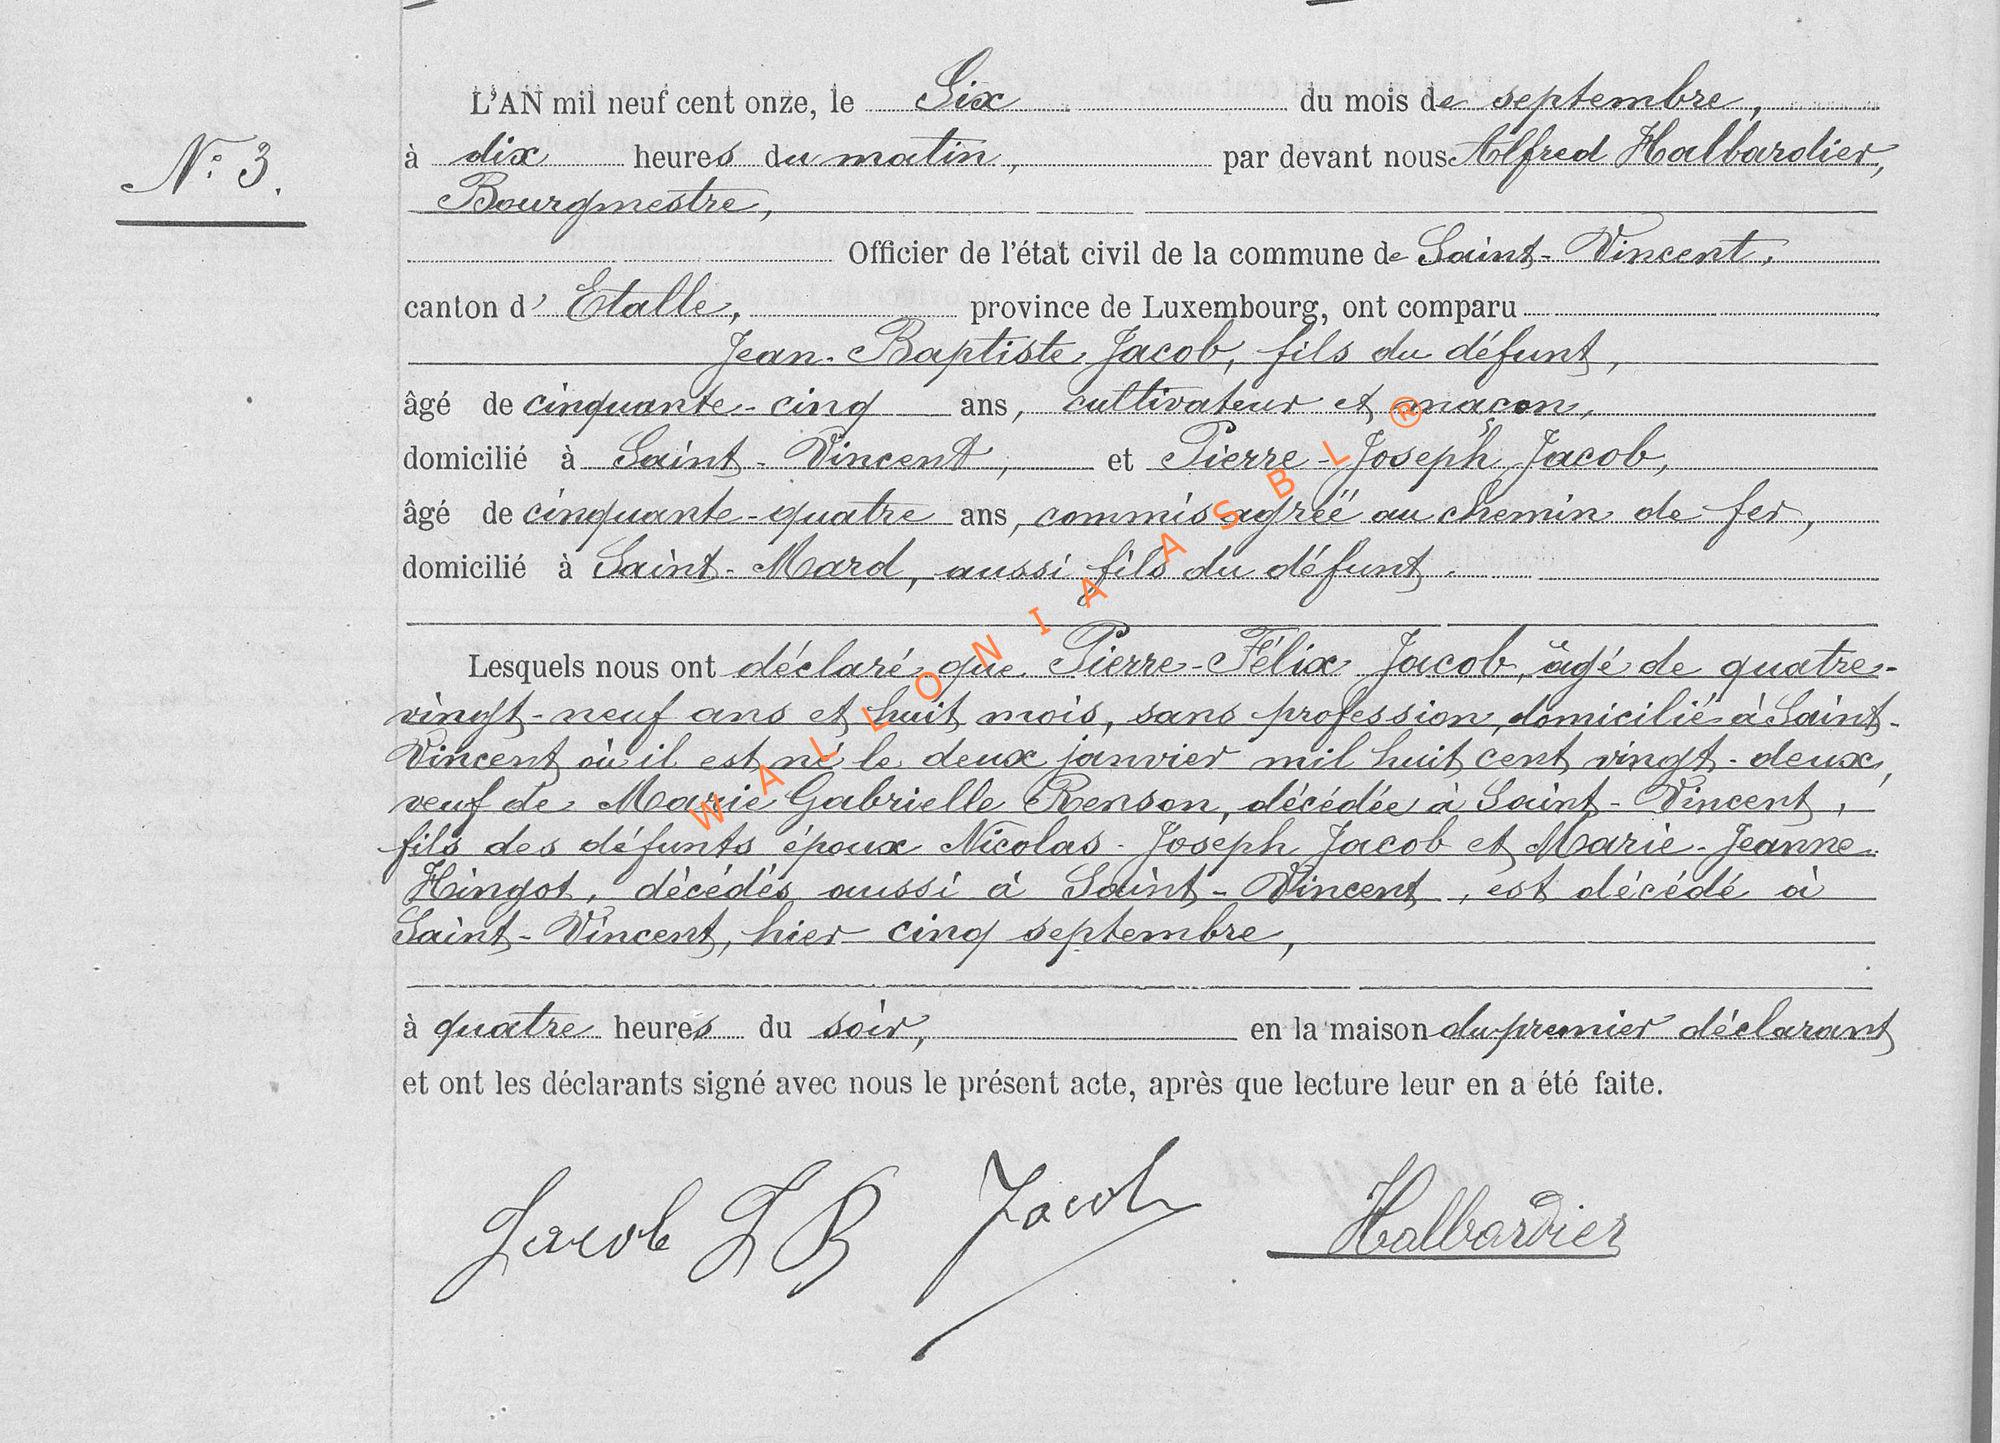 L'AN mil neuf cent onze, le Six du mois de septembre,
N° 3.
à dix heures du matin, par devant nous Alfred Halbardier,
Bourgmestre,
Officier de l'état civil de la commune de Saint-Vincent,
canton d' Etalle, province de Luxembourg, ont comparu
Jean-Baptiste Jacob, fils du défunt,
âgé de cinquante-cinq ans, cultivateur et maçon,
domicilié à Saint-Vincent, et Pierre-Joseph Jacob,
âgé de cinquante-quatre ans, commis agréé au chemin de fer,
domicilié à Saint-Mard, aussi fils du défunt.
Lesquels nous ont déclaré que Pierre-Félix Jacob, âgé de quatre-
vingt-neuf ans et huit mois, sans profession, domicilié à Saint-
Vincent où il est né le deux janvier mil huit cent vingt-deux,
veuf de Marie Gabrielle Renson, décédée à Saint-Vincent,
fils des défunts époux Nicolas-Joseph Jacob et Marie-Jeanne
Hingot, décédés aussi à Saint-Vincent, est décédé à
Saint-Vincent, hier cinq septembre,
à quatre heures du soir, en la maison du premier déclarant
et ont les déclarants signé avec nous le présent acte, après que lecture leur en a été faite.
Jacob J B Jacob Halbardier
WALLONIA ASBL ®